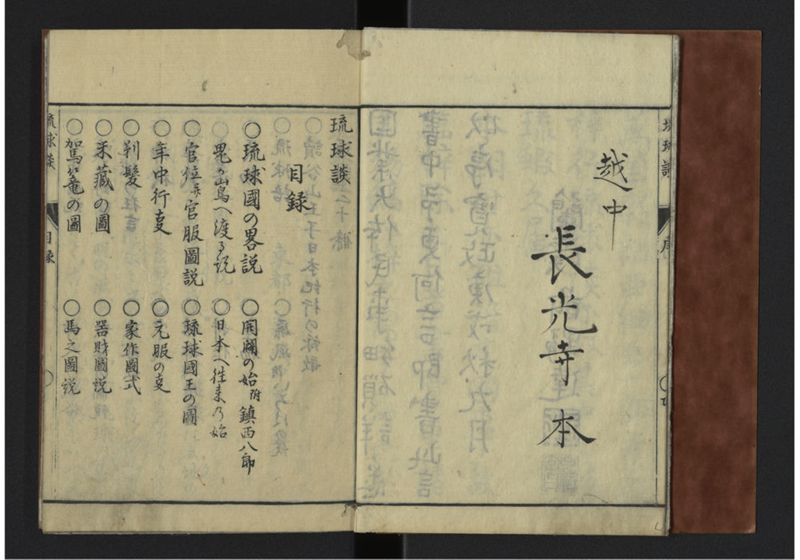 越中
長光寺本
琉球談
目録
○琉球國の畧説 ○開闢の始附鎮西八郎
鬼が嶌へ渡る説 ○日本へ往来の始
○官位并官服圖説 ○琉球國王の圖
○年中行叓 ○元服の叓
○剃髪 ○家作圖式
○米蔵の圖 ○器財圖説
○駕籠の圖 ○馬之圖説
琉球談 目録